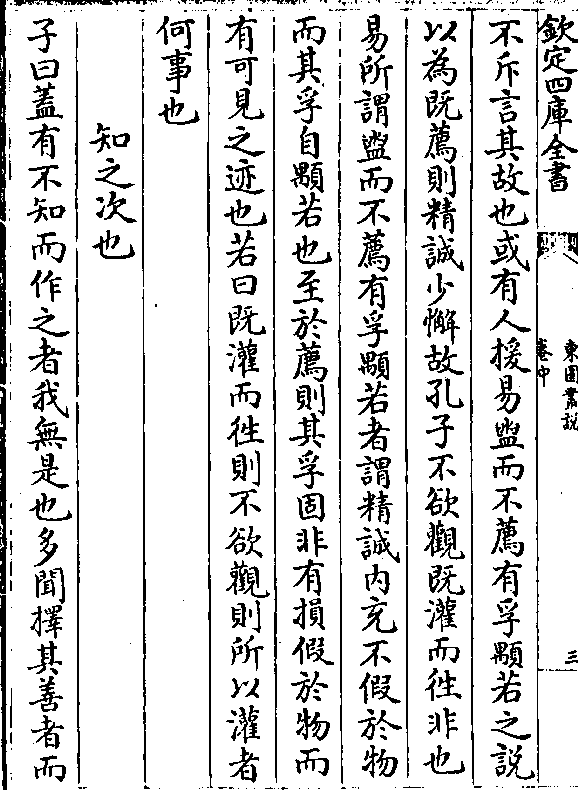 欽定四庫全書
東園叢説
卷中
三
不斥言其故也或有人援易盥而不薦有孚顒若之説
以為既薦則精誠少懈故孔子不欲觀既灌而徃非也
易所謂盥而不薦有孚顒若者謂精誠内充不假於物
而其孚自顒若也至於薦則其孚固非有損假於物而
有可見之迹也若曰既灌而徃則不欲觀則所以灌者
何事也
知之次也
子曰蓋有不知而作之者我無是也多聞擇其善者而